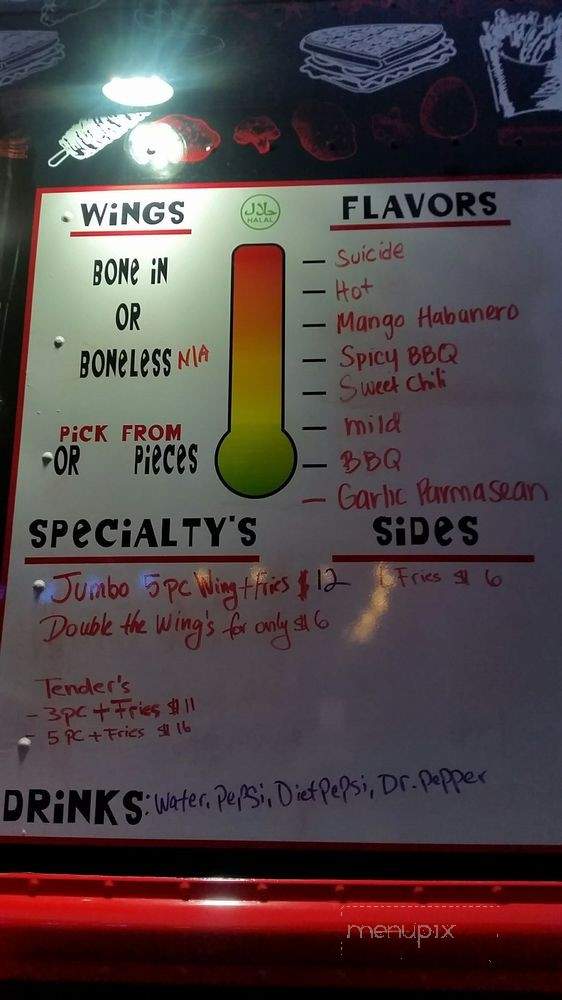 WiNGS
حلال
HALAL
FLAVORS
BONe iN
OR
BONeLeSS N/A
PiCK FROM
OR PieCeS
Suicide
Hot
Mango Habanero
Spicy BBQ
Sweet Chili
mild
BBQ
Garlic Parmasean
SPeCiALTY'S
Jumbo 5pc Wing + Fries $12
Double the Wing's for only $6
Tender's
- 3pc + Fries $11
- 5 PC + Fries $16
SiDeS
Fries $6
DRiNKS: Water, Pepsi, Diet Pepsi, Dr. Pepper
menupix